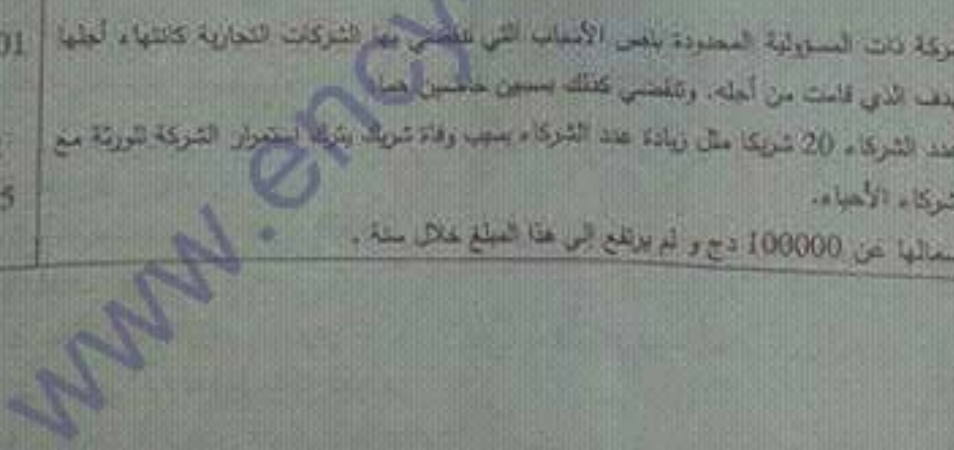 ركة ذات المسؤولية المحدودة بنفس الأسباب التي تنقضي بها الشركات التجارية كانتهاء أجلها
01
هدف الذي قامت من أجله، وتنقضي كذلك بسببين خاصين هما
عدد الشركاء 20 شريكا مثل زيادة عدد الشركاء بسبب وفاة شريك يترك استمرار الشركة للورثة مع
شركاء الأحياء.
5
سمالها عن 100000 دج و لم يرتفع الى هذا المبلغ خلال سنة .
www.ency